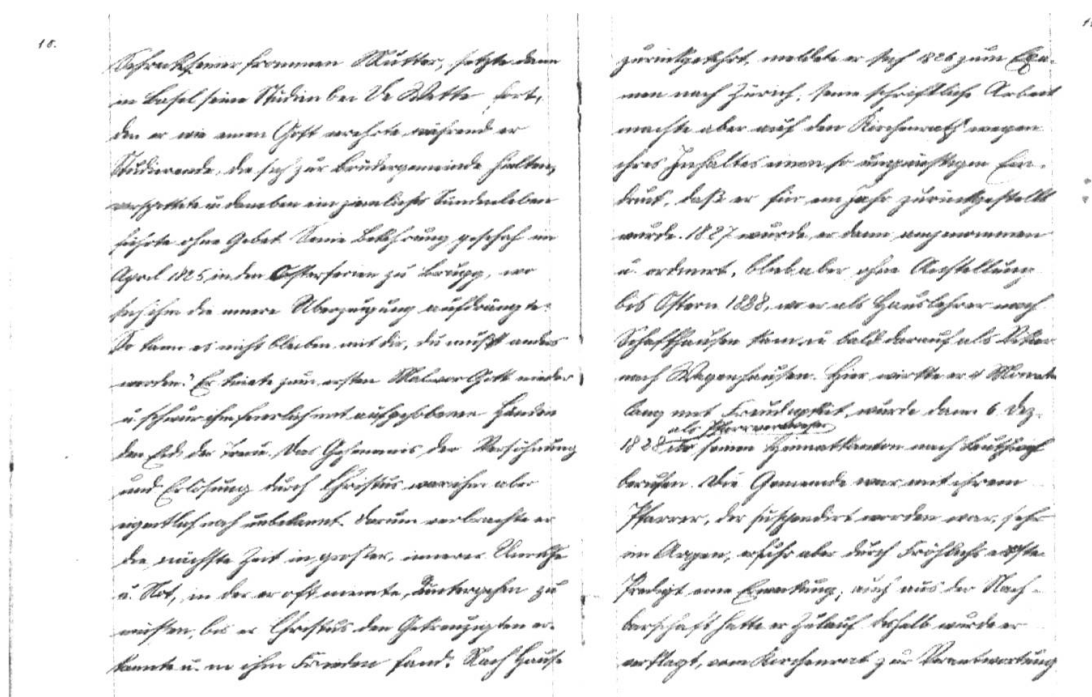 18.
Schreck seiner frommen Mutter, setzte dann
in Basel seine Studien bei De Wette fort,
den er wie einen Gott verehrte während er
Studierende, die sich zur Brüdergemeinde hielten,
verspottete u. daneben ein ziemliches Sündenleben
führte ohne Gebet. Seine Bekehrung geschah im
April 1825 in den Osterferien zu Brugg, wo
sich ihm die innere Überzeugung aufdrängte:
So kann es nicht bleiben mit dir, du mußt anders
werden." Er kniete zum ersten Mal vor Gott nieder
u. schwur ihm feierlich mit aufgehobenen Händen
den Eid der Treue. Das Geheimnis der Versöhnung
und Erlösung durch Christus war ihm aber
eigentlich noch unbekannt. Darum verbrachte er
die nächste Zeit in großer, innerer Unruhe
u. Not, in der er oft meinte, untergehen zu
müssen, bis er Christus den Gekreuzigten er-
kannte u. in ihm Frieden fand. Nach Hause
zurückgekehrt, meldete er sich 1826 zum Exa-
men nach Zürich; seine schriftliche Arbeit
machte aber auf den Kirchenrath wegen
ihres Inhaltes einen so ungünstigen Ein-
druck, daß er für ein Jahr zurückgestellt
wurde. 1827 wurde er dann angenommen
u. ordiniert, blieb aber ohne Anstellung
bis Ostern 1828, wo er als Hauslehrer nach
Schaffhausen kam, u. bald darauf als Vikar
nach Wagenhausen. Hier wirkte er 4 Monate
lang mit Freudigkeit, wurde dann 6. Dez.
als Pfarrverweser
1828 seinen Heimatkanton nach Leutwil
berufen. Die Gemeinde war mit ihrem
Pfarrer, der suspendiert worden war, sehr
im Argen, erfuhr aber durch Fröhlichs erste
Predigt eine Erweckung; auch aus der Nach-
barschaft hatte er Zulauf. Deshalb wurde er
verklagt, vom Kirchenrat zur Verantwortung